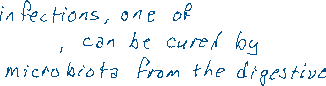 infections, one of
, can be cured by
microbiota from the digestive